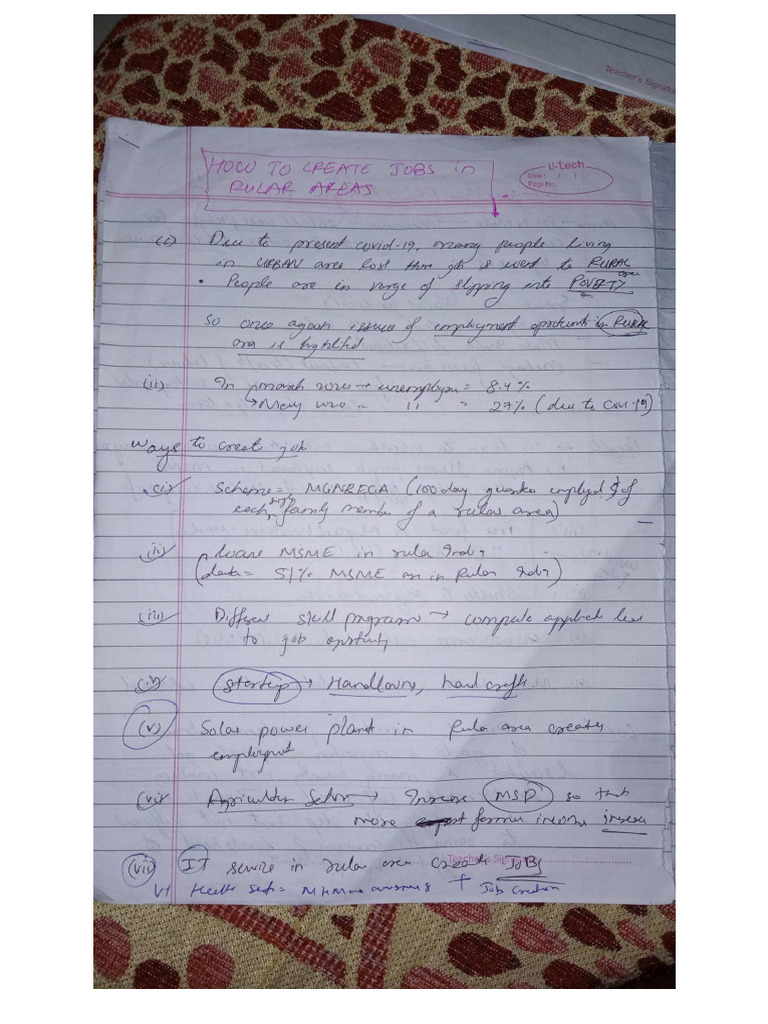 Teacher's Signatu
HOW TO CREATE JOBS in
RULAR AREAS
U-tech
Date : / /
Page No:
(i) Due to present covid-19, many people living
in URBAN area lost their job & went to RURAL
area
• People are in verge of slipping into POVERTY
So once again issue of employment in RURAL
area is highlited
(ii) In march 2020 → unemploy = 8.4%
→ May 2020 = 11 = 27% (due to Cov-19)
Ways to creat job
(i) Scheme = MGNREGA (100 day of
each single family member of a rular area)
(ii) MSME in rular India
(data = 51% MSME are in Rular India)
(iii) Differen skill program →
to job
(iv) Startup → Handloom, hand crafts
(v) Solar power plant in Rula area creates
(vi) Agricultur Sector → Increase MSP so that
more farmer income increa
(vii) IT service in rular area creat JOBs
Teacher's Signature
VI Health Sect = NHM → + Job Creation